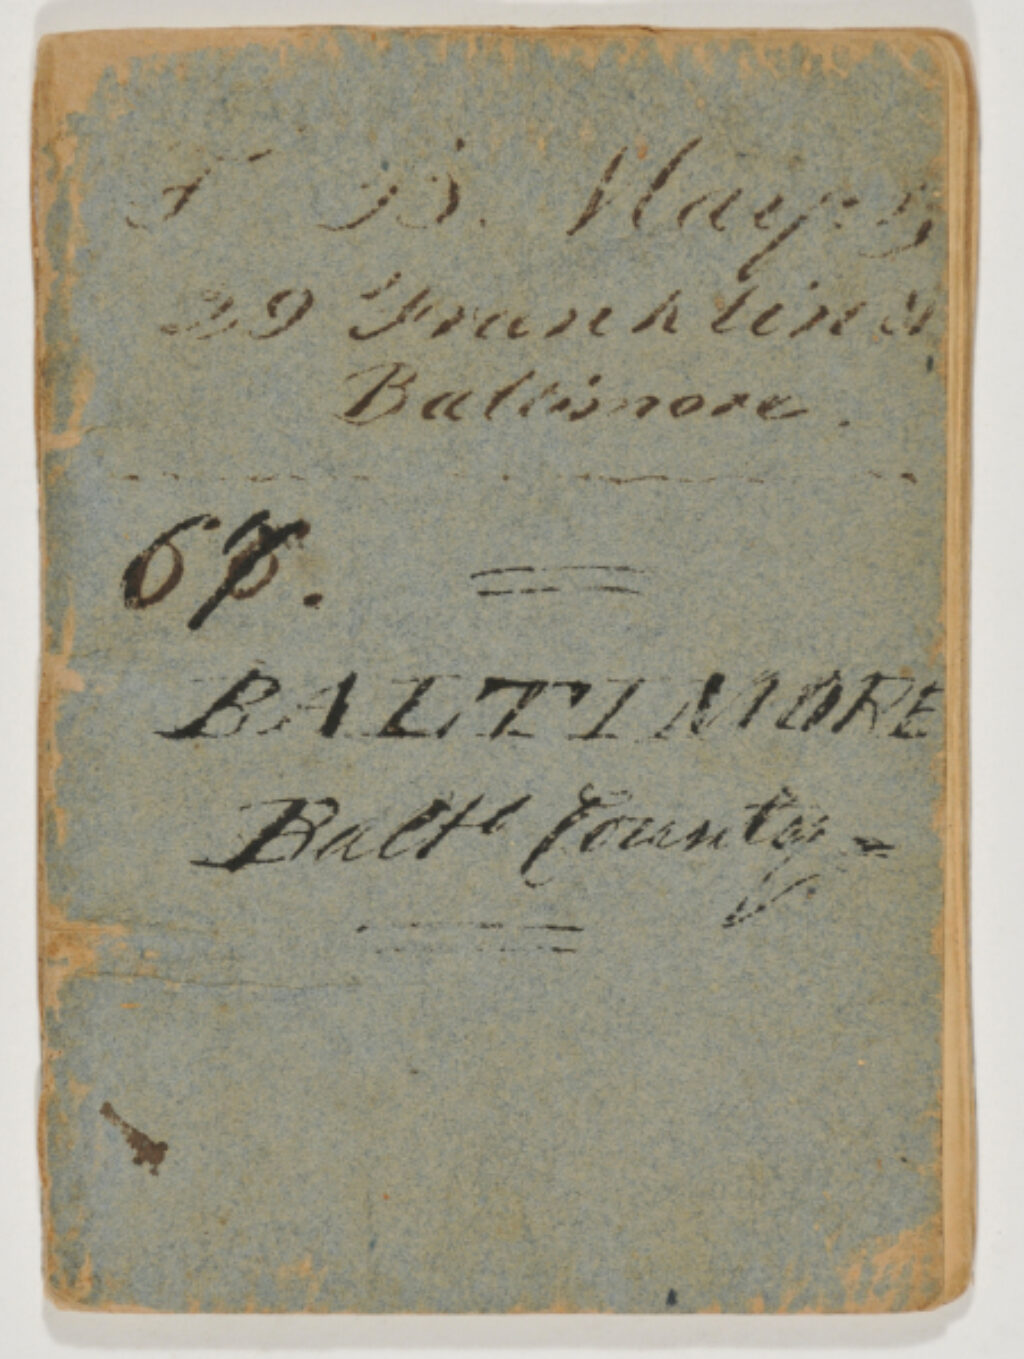 B. Mayer
29 Franklin St
Baltimore.
67.
BALTIMORE
Balto County